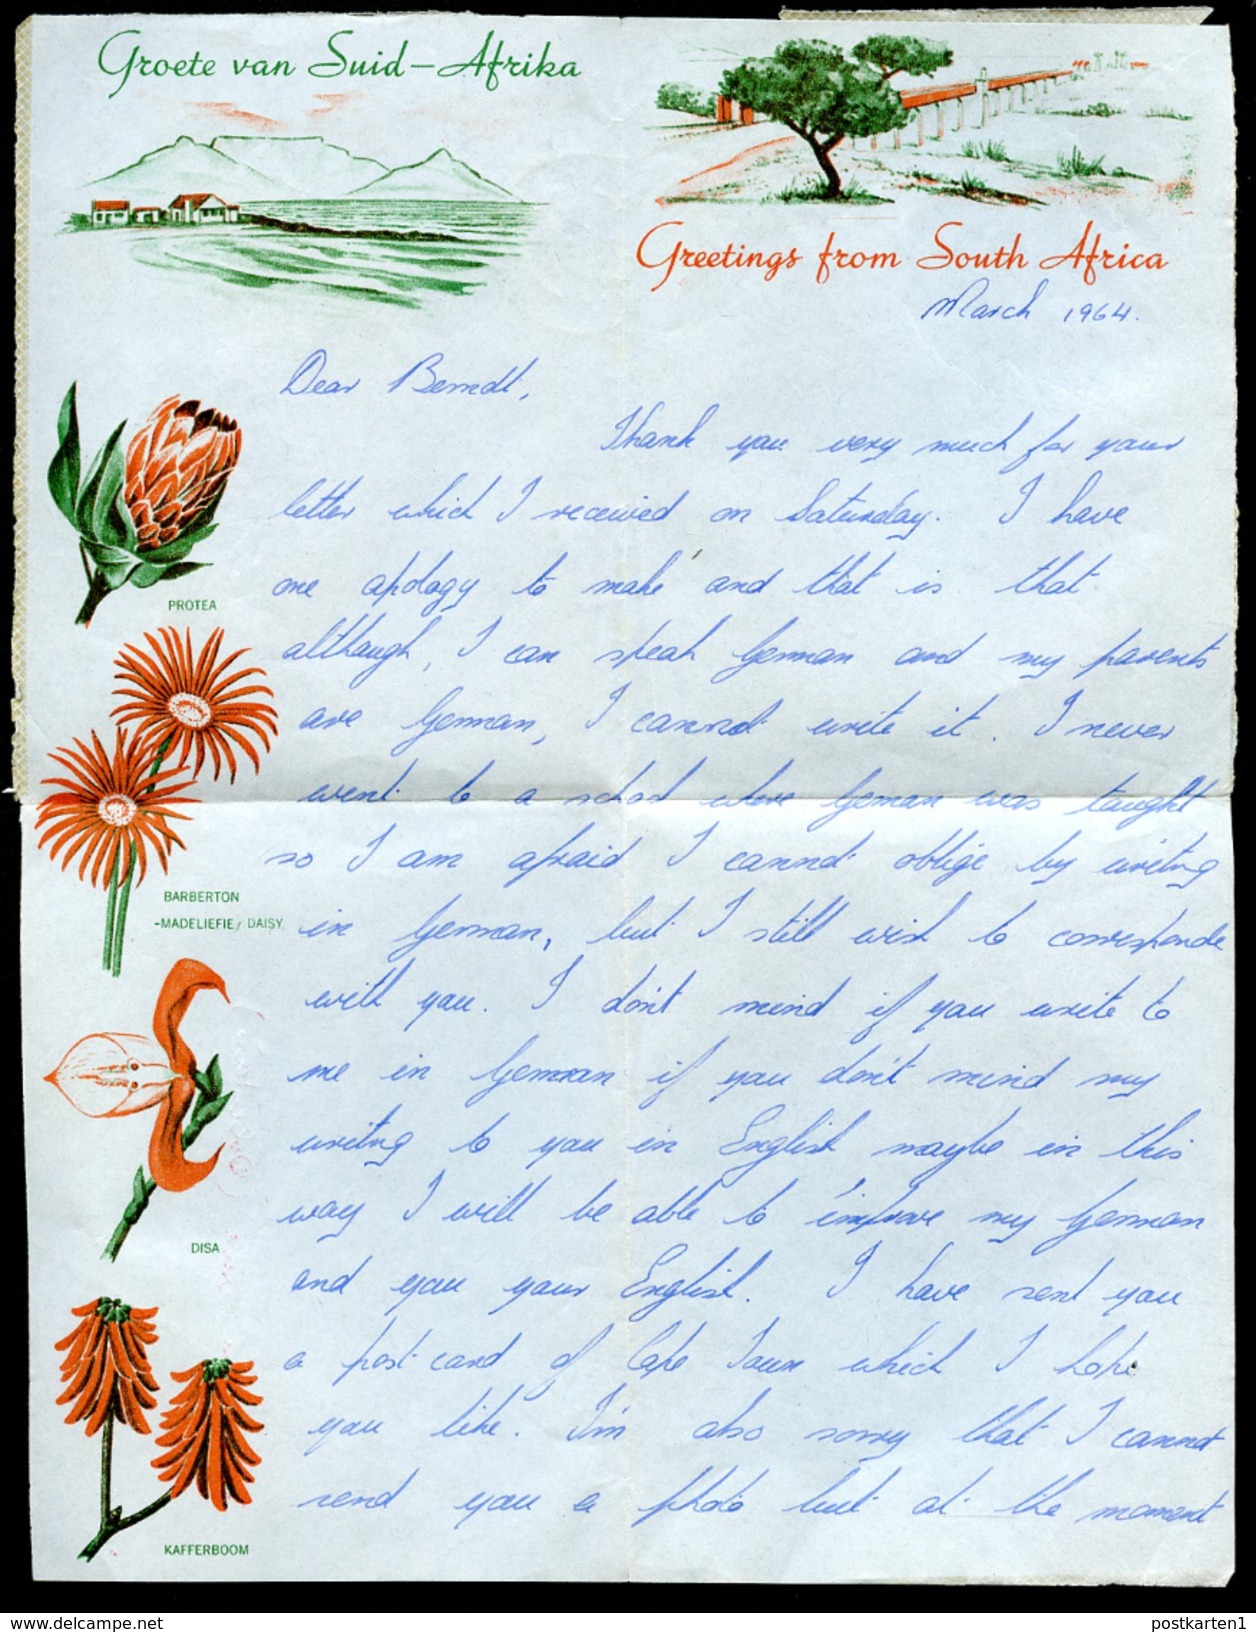 Groete van Suid-Afrika
Greetings from South Africa
March 1964.
Dear Berndt,
Thank you very much for your
letter which I received on Saturday. I have
one apology to make and that is that
although, I can speak German and my parents
are German, I cannot write it. I never
went to a school where German was taught
so I am afraid I cannot oblige by writing
in German, but I still wish to corresponde
with you. I don't mind if you write to
me in German if you don't mind my
writing to you in English maybe in this
way I will be able to improve my German
and you your English. I have sent you
a post-card of Cape Town which I hope
you like. I'm also sorry that I cannot
send you a photo but at the moment
PROTEA
BARBERTON
-MADELIEFIE/ DAISY
DISA
KAFFERBOOM
postkarten1